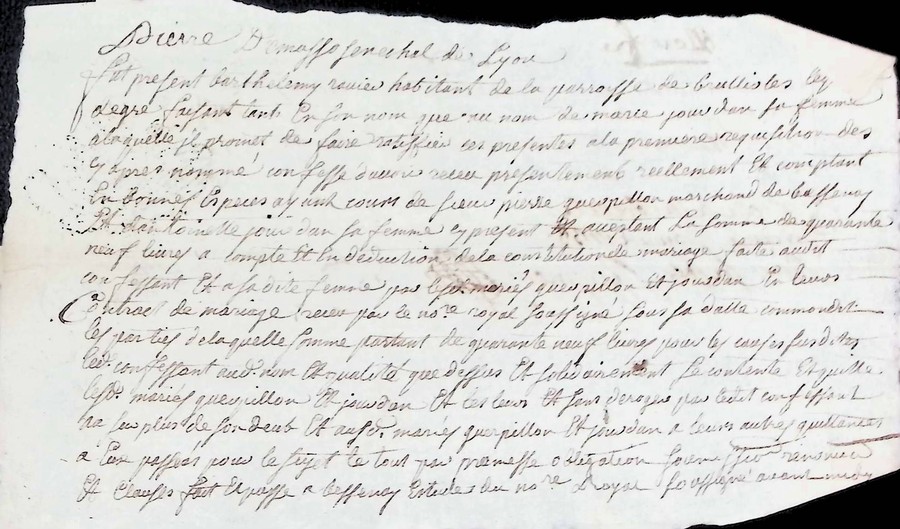 Pierre Demasso senechal de Lyon
fut present barthelemy ravier habitant de la parroisse de brullioles ley
degré faisant tant En son nom que au nom de marie jourdan sa femme
a laquelle jl promet de faire ratiffier ces presentes a la premiere requisition des
cy apres nommé confesse d'avoir receu presentement reellement Et comptant
En bonnes Especes ayant cours de sieur pierre querpillon marchand de bessenay
Et d'antoinette jourdan sa femme cy present Et aceptant La somme de quarante
neuf livres a compte Et En deduction de la constitution de mariage faite audit
confessant Et a sa dite femme par lesd. mariés querpillon Et jourdan En leurs
Contract de mariage receu par le nore. royal soussigné sous sa datte commandt.
les parties de laquelle somme partant de quarante neuf livres pour les causes susdites
led. confessant aud. nom Et qualité que dessus Et solidairement se contente Et quitte
lesd. mariés querpillon Et jourdan Et les leurs Et sans deroger par ledit confessant
au su plus de son deub Et ausd. mariés querpillon Et jourdan a leurs autres quittances
a Eux passées pour le sujet le tout par promesse obligation soumission renoncion
Et clauses fait Et passé a bessenay Estude du nore. Royal soussigné avant midy